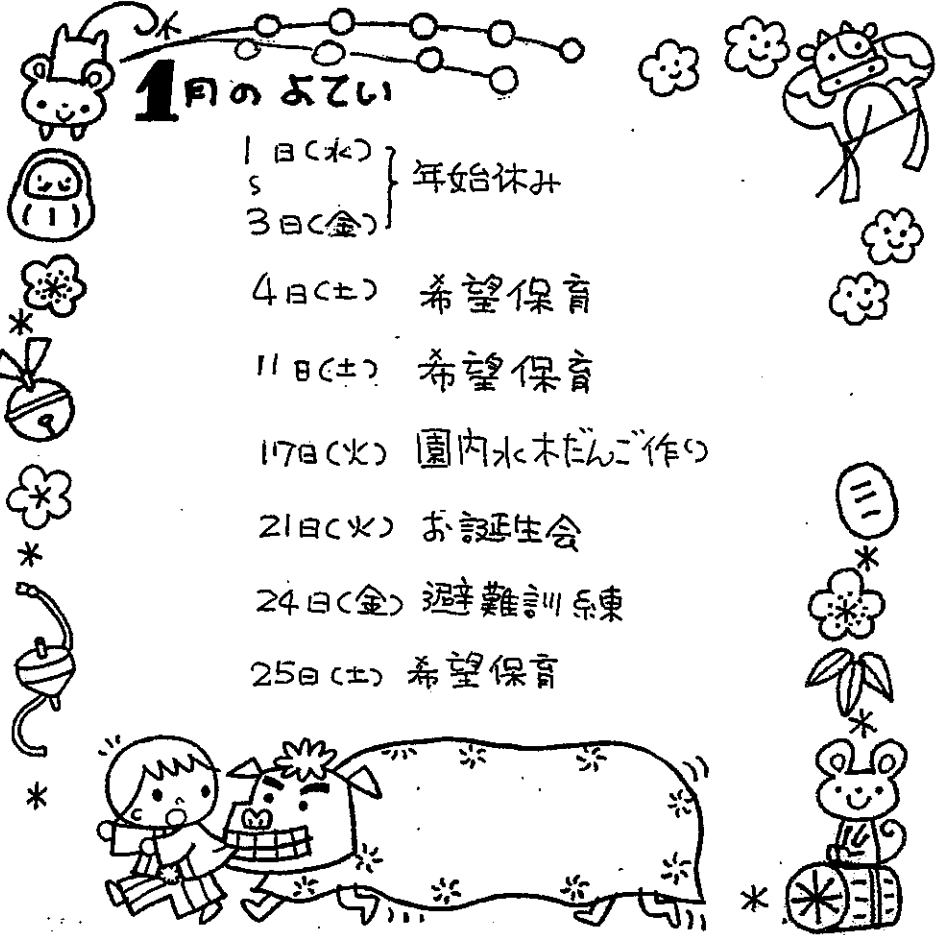 1月のよてい
1日(水)
〜
3日(金)
年始休み
4日(土) 希望保育
11日(土) 希望保育
17日(火) 園内水木だんご作り
21日(火) お誕生会
24日(金) 避難訓練
25日(土) 希望保育